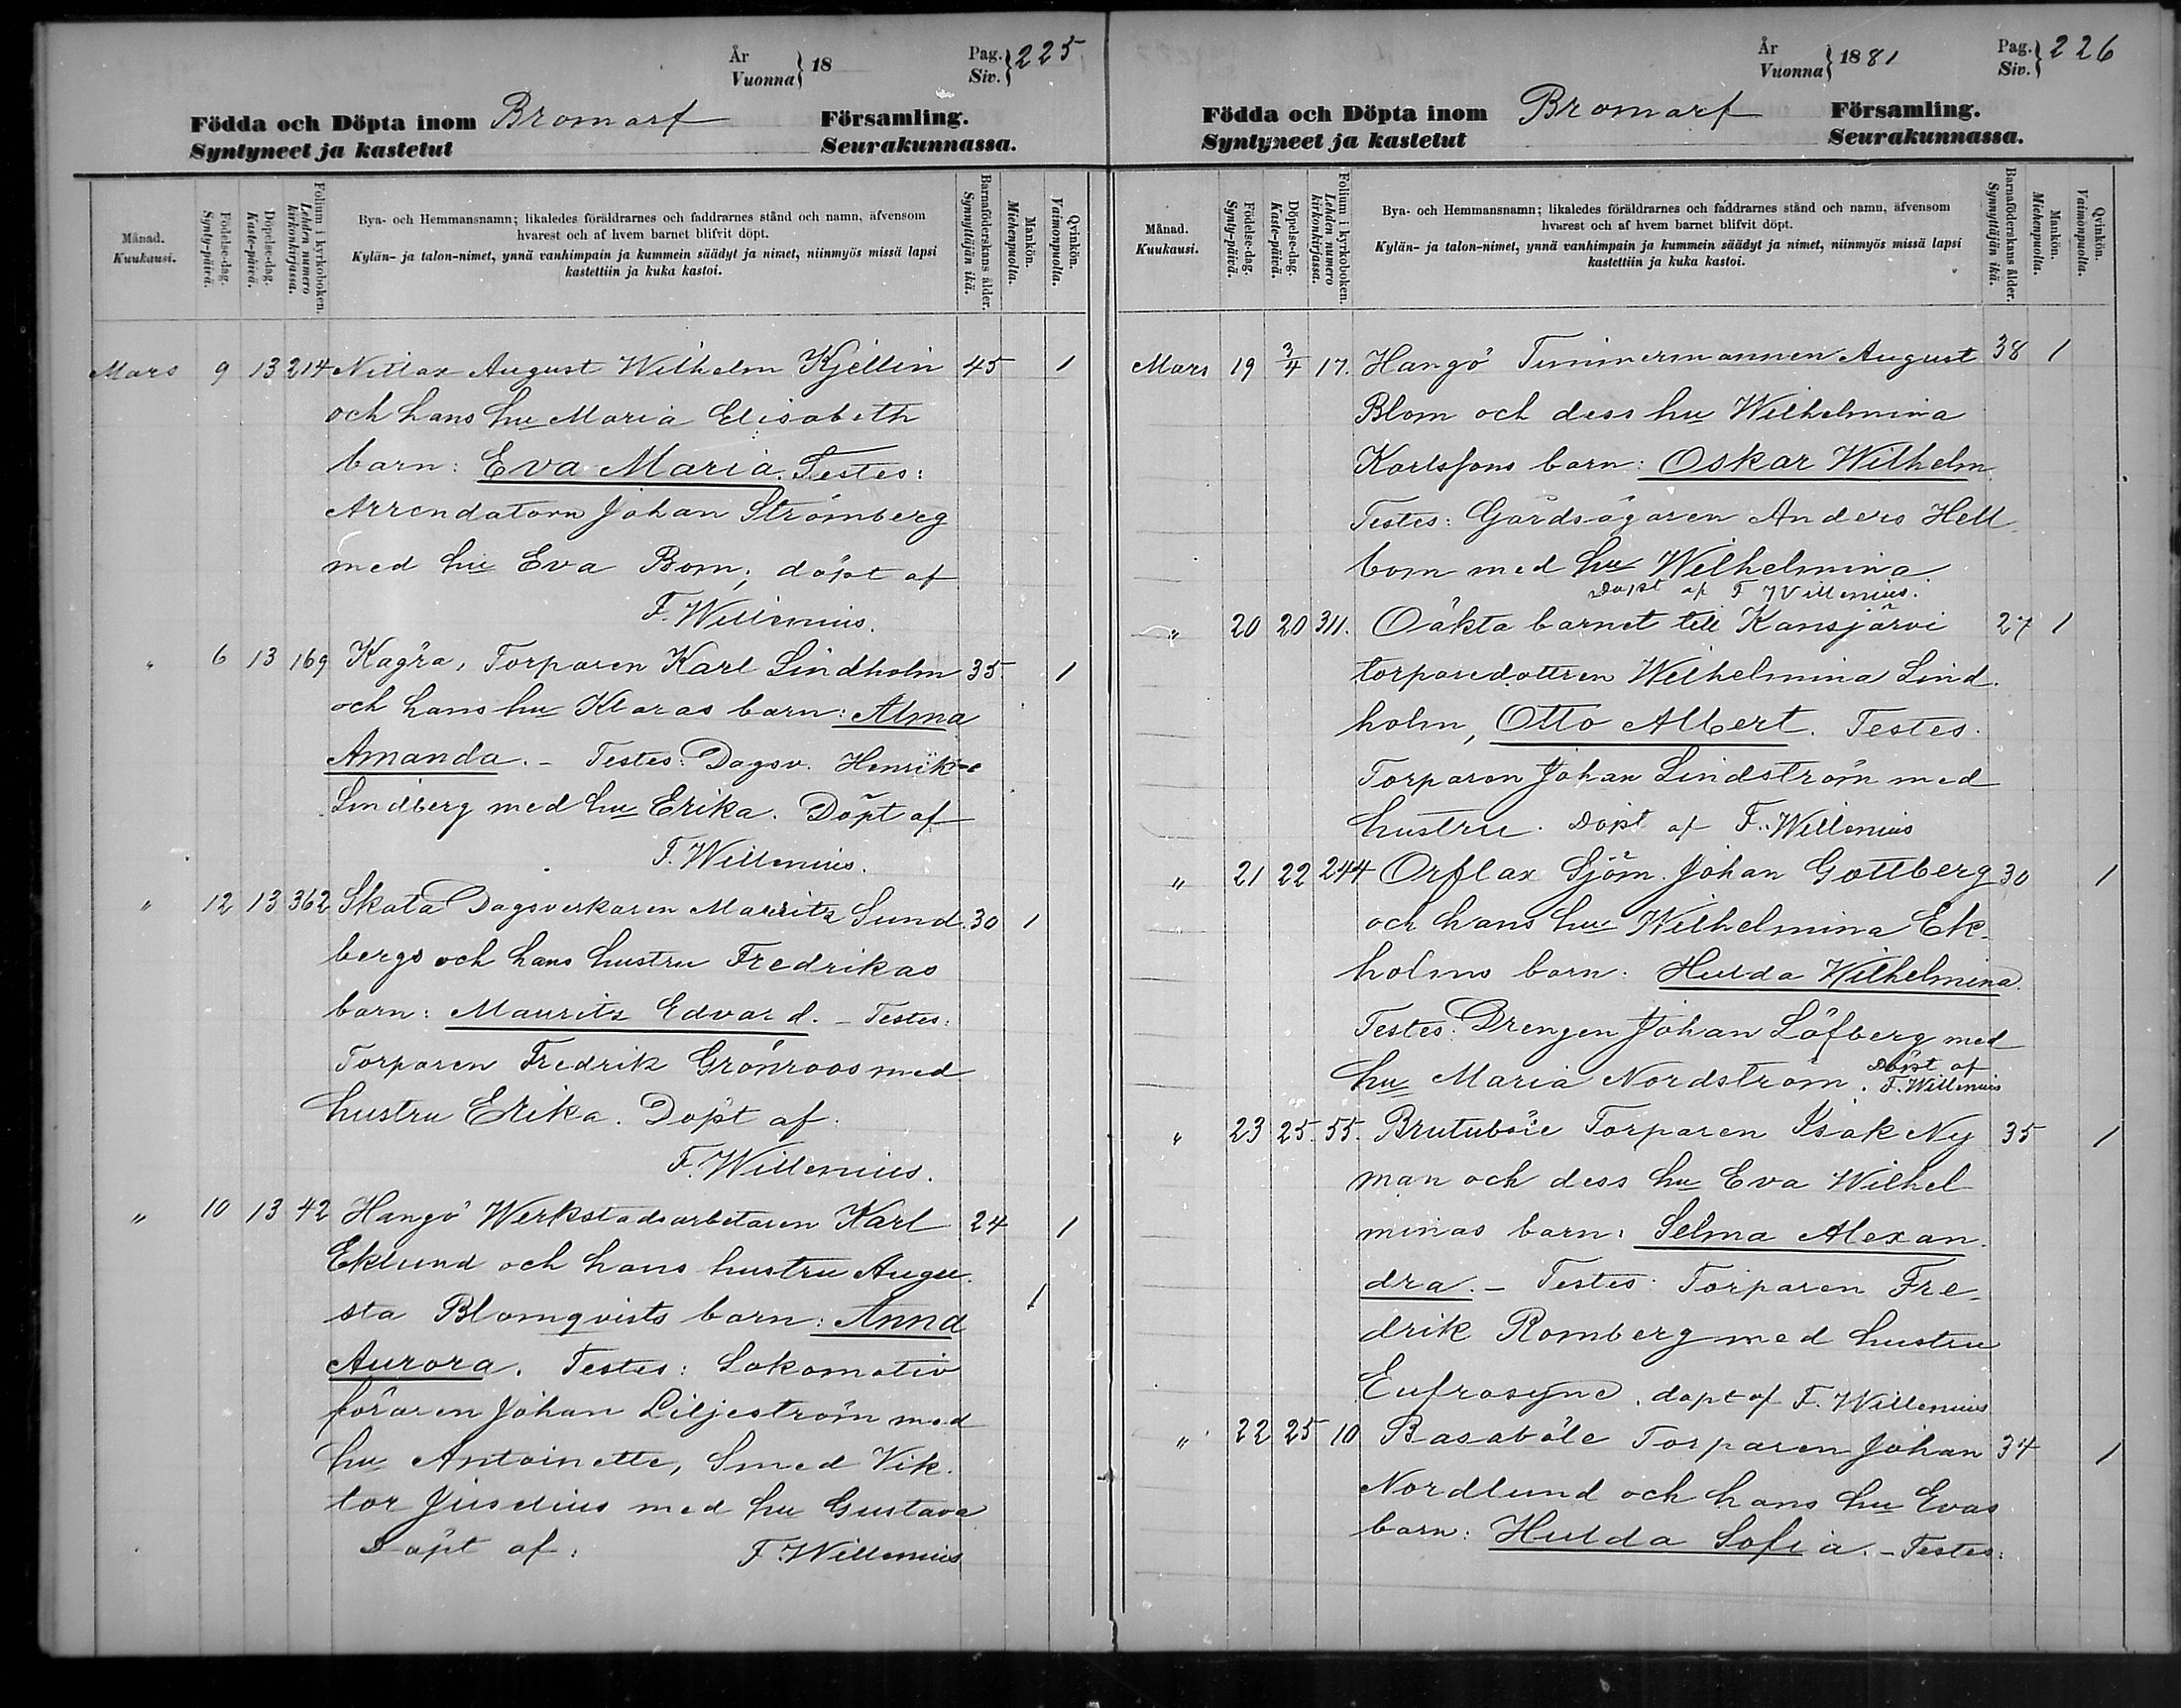 År
Vuonna } 18
Pag.
Siv. } 225
Födda och Döpta inom Bromarf Församling.
Syntyneet ja kastetut Seurakunnassa.
Månad.
Kuukausi.
Födelse-dag.
Synty-päivä.
Döpelse-dag.
Kaste-päivä.
Folium i kyrkoboken.
Lehden numero
kirkonkirjassa.
Bya- och Hemmansnamn; likaledes föräldrarnes och faddrarnes stånd och namn, äfvensom
hvarest och af hvem barnet blifvit döpt.
Kylän- ja talon-nimet, ynnä vanhimpain ja kummein säädyt ja nimet, niinmyös missä lapsi
kastettiin ja kuka kastoi.
Barnaföderskans ålder.
Synnyttäjän ikä.
Mankön.
Miehenpuolta.
Qvinkön.
Vaimonpuolta.
Mars 9 13 214 Nitlax August Wilhelm Kjellin 45 1
och hans hu Maria Elisabeth
barn: Eva Maria. Testes:
Arrendatorn Johan Strömberg
med hu Eva Bom; döpt af
F. Willenius.
" 6 13 169 Kagra, Torparen Karl Lindholm 35 1
och hans hu Klaras barn: Alma
Amanda. - Testes: Dagsv. Henrik
Lindberg med hu Erika. Döpt af
F. Willenius.
" 12 13 362 Skata Dagsverkaren Mauritz Sund 30 1
bergs och hans hustru Fredrikas
barn: Mauritz Edvard. - Testes:
Torparen Fredrik Grönroos med
hustru Erika. Döpt af
F. Willenius.
" 10 13 42 Hangö Werkstadsarbetaren Karl 24 1
Eklund och hans hustru Augu-
sta Blomqvists barn: Anna 1
Aurora. Testes: Lokomotiv
föraren Johan Liljeström med
hu Antoinette, Smed Vik-
tor Juselius med hu Gustava
Döpt af: F. Willenius
År
Vuonna } 1881
Pag.
Siv. } 226
Födda och Döpta inom Bromarf Församling.
Syntyneet ja kastetut Seurakunnassa.
Månad.
Kuukausi.
Födelse-dag.
Synty-päivä.
Döpelse-dag.
Kaste-päivä.
Folium i kyrkoboken.
Lehden numero
kirkonkirjassa.
Bya- och Hemmansnamn; likaledes föräldrarnes och faddrarnes stånd och namn, äfvensom
hvarest och af hvem barnet blifvit döpt.
Kylän- ja talon-nimet, ynnä vanhimpain ja kummein säädyt ja nimet, niinmyös missä lapsi
kastettiin ja kuka kastoi.
Barnaföderskans ålder.
Synnyttäjän ikä.
Mankön.
Miehenpuolta.
Qvinkön.
Vaimonpuolta.
Mars 19 3/4 17. Hangö Timmermannen August 38 1
Blom och dess hu Wilhelmina
Karlssons barn: Oskar Wilhelm
Testes: Gårdsägaren Anders Hell-
bom med hu Wilhelmina
Döpt af F Willenius.
" 20 20 311. Oäkta barnet till Kansjärvi 27 1
torparedottren Wilhelmina Lind-
holm, Otto Albert. Testes.
Torparen Johan Lindström med
hustru. Döpt af F. Willenius
" 21 22 244 Orflax Sjöm. Johan Gottberg 30 1
och hans hu Wilhelmina Ek-
holms barn: Hulda Wilhelmina.
Testes: Drengen Johan Löfberg med
hu Maria Nordström. Döpt af
F. Willenius
" 23 25. 55. Brutuböle Torparen Isak Ny 35 1
man och dess hu Eva Wilhel
minas barn: Selma Alexan-
dra. - Testes: Torparen Fre-
drik Romberg med hustru
Eufrosyne. döpt af F. Willenius
" 22 25 10 Basaböle Torparen Johan 34 1
Nordlund och hans hu Evas
barn: Hulda Sofia. - Testes: